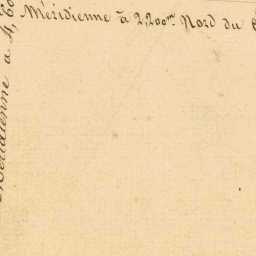 Méridienne à 2,200m Nord du
Méridienne à 4,60